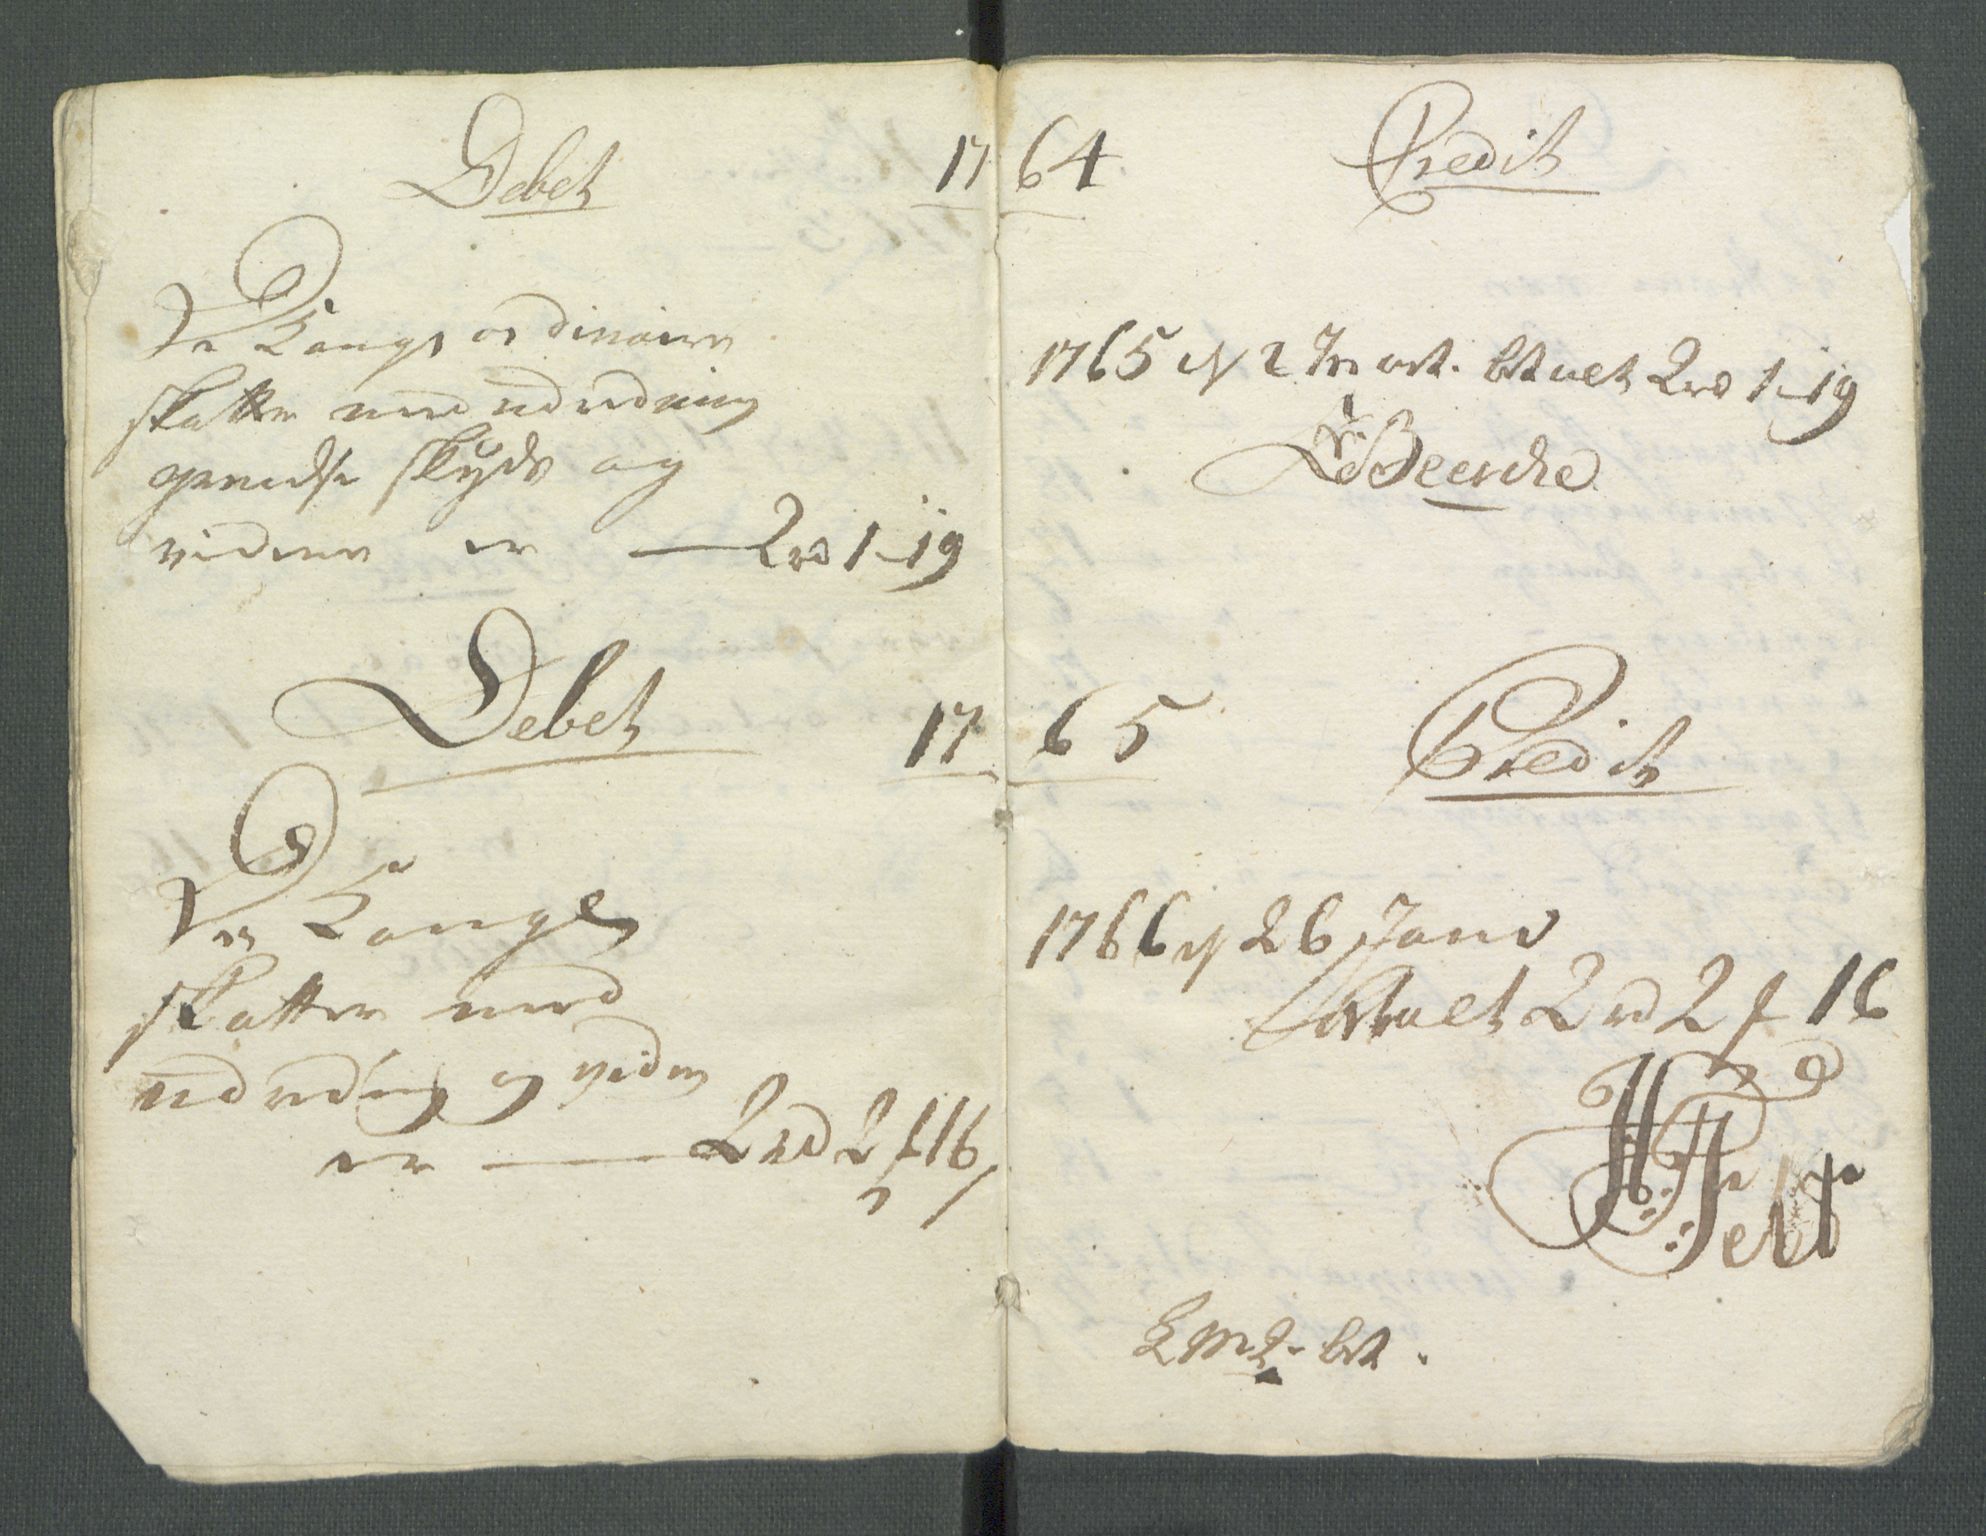 Debet
1764
Credit
De Kongl ordinaire
skatter med udredning
grendse skyds og
videre er — 2rd 1-19
1765 d 2 Mart. betalt 2rd 1-19
Debet
1765
Credit
De Kongl
skatter med
udreding og viden
er — 2rd 2 f 16
1766 d 26 Janv
betalt 2rd 2 f 16
bet.